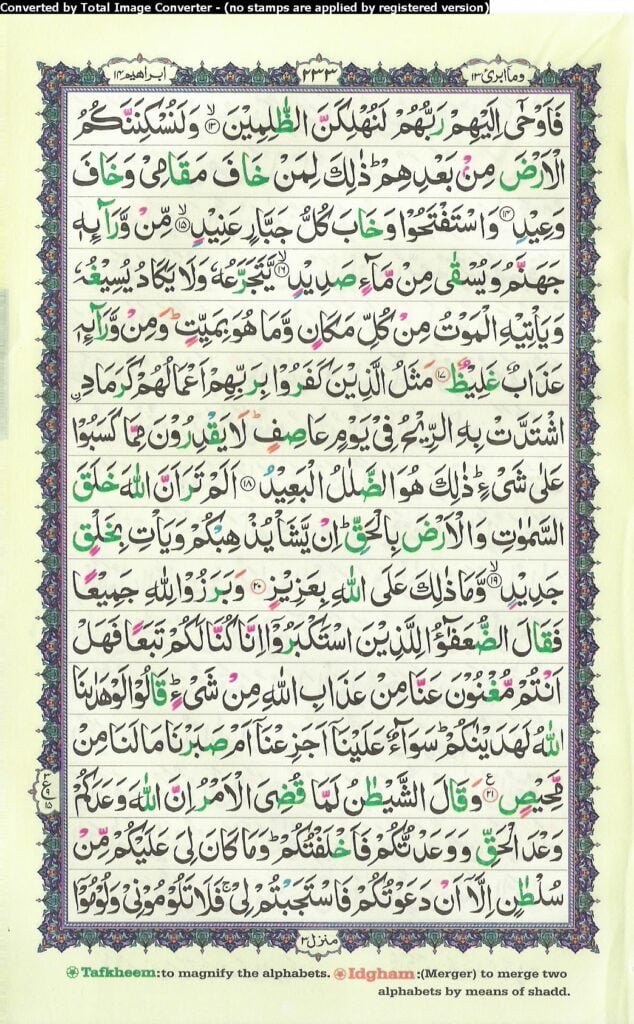 Converted by Total Image Converter - (no stamps are applied by registered version)
وما ابرئ ١٣
٢٣٣
ابراهيم ١٤
فَاَوْحٰۤى اِلَيْهِمْ رَبُّهُمْ لَنُهْلِكَنَّ الظّٰلِمِيْنَ ۙ‏﴿۱۳﴾ وَلَنُسْكِنَنَّكُمُ
الْاَرْضَ مِنْۢ بَعْدِهِمْ ؕ ذٰلِكَ لِمَنْ خَافَ مَقَامِىْ وَخَافَ
وَعِيْدِ ﴿۱۴﴾ وَاسْتَفْتَحُوْا وَخَابَ كُلُّ جَبَّارٍ عَنِيْدٍ ۙ‏﴿۱۵﴾ مِّنْ وَّرَآئِهٖ
جَهَنَّمُ وَيُسْقٰى مِنْ مَّآءٍ صَدِيْدٍ ۙ‏﴿۱۶﴾ يَّتَجَرَّعُهٗ وَلَا يَكَادُ يُسِيْغُهٗ
وَيَاْتِيْهِ الْمَوْتُ مِنْ كُلِّ مَكَانٍ وَّمَا هُوَ بِمَيِّتٍ ؕ وَمِنْ وَّرَآئِهٖ
عَذَابٌ غَلِيْظٌ ﴿۱۷﴾ مَثَلُ الَّذِيْنَ كَفَرُوْا بِرَبِّهِمْ اَعْمَالُهُمْ كَرَمَادِ
اۨشْتَدَّتْ بِهِ الرِّيْحُ فِىْ يَوْمٍ عَاصِفٍ ؕ لَا يَقْدِرُوْنَ مِمَّا كَسَبُوْا
عَلٰى شَىْءٍ ؕ ذٰلِكَ هُوَ الضَّلٰلُ الْبَعِيْدُ ﴿۱۸﴾ اَلَمْ تَرَ اَنَّ اللّٰهَ خَلَقَ
السَّمٰوٰتِ وَالْاَرْضَ بِالْحَقِّ ؕ اِنْ يَّشَاْ يُذْهِبْكُمْ وَيَاْتِ بِخَلْقٍ
جَدِيْدٍ ۙ‏﴿۱۹﴾ وَّمَا ذٰلِكَ عَلَى اللّٰهِ بِعَزِيْزٍ ﴿۲۰﴾ وَبَرَزُوْا لِلّٰهِ جَمِيْعًا
فَقَالَ الضُّعَفٰٓؤُا لِلَّذِيْنَ اسْتَكْبَرُوْۤا اِنَّا كُنَّا لَكُمْ تَبَعًا فَهَلْ
اَنْتُمْ مُّغْنُوْنَ عَنَّا مِنْ عَذَابِ اللّٰهِ مِنْ شَىْءٍ ؕ قَالُوْا لَوْ هَدٰٮنَا
اللّٰهُ لَهَدَيْنٰكُمْ ؕ سَوَآءٌ عَلَيْنَاۤ اَجَزِعْنَاۤ اَمْ صَبَرْنَا مَا لَنَا مِنْ
مَّحِيْصٍ ﴿۲۱﴾ وَقَالَ الشَّيْطٰنُ لَمَّا قُضِىَ الْاَمْرُ اِنَّ اللّٰهَ وَعَدَكُمْ
وَعْدَ الْحَقِّ وَوَعَدْتُّكُمْ فَاَخْلَفْتُكُمْ ؕ وَمَا كَانَ لِىَ عَلَيْكُمْ مِّنْ
سُلْطٰنٍ اِلَّاۤ اَنْ دَعَوْتُكُمْ فَاسْتَجَبْتُمْ لِىْ ۚ فَلَا تَلُوْمُوْنِىْ وَلُوْمُوْۤا
ع ١٥
منزل ٣
Tafkheem:to magnify the alphabets. Idgham:(Merger) to merge two
alphabets by means of shadd.